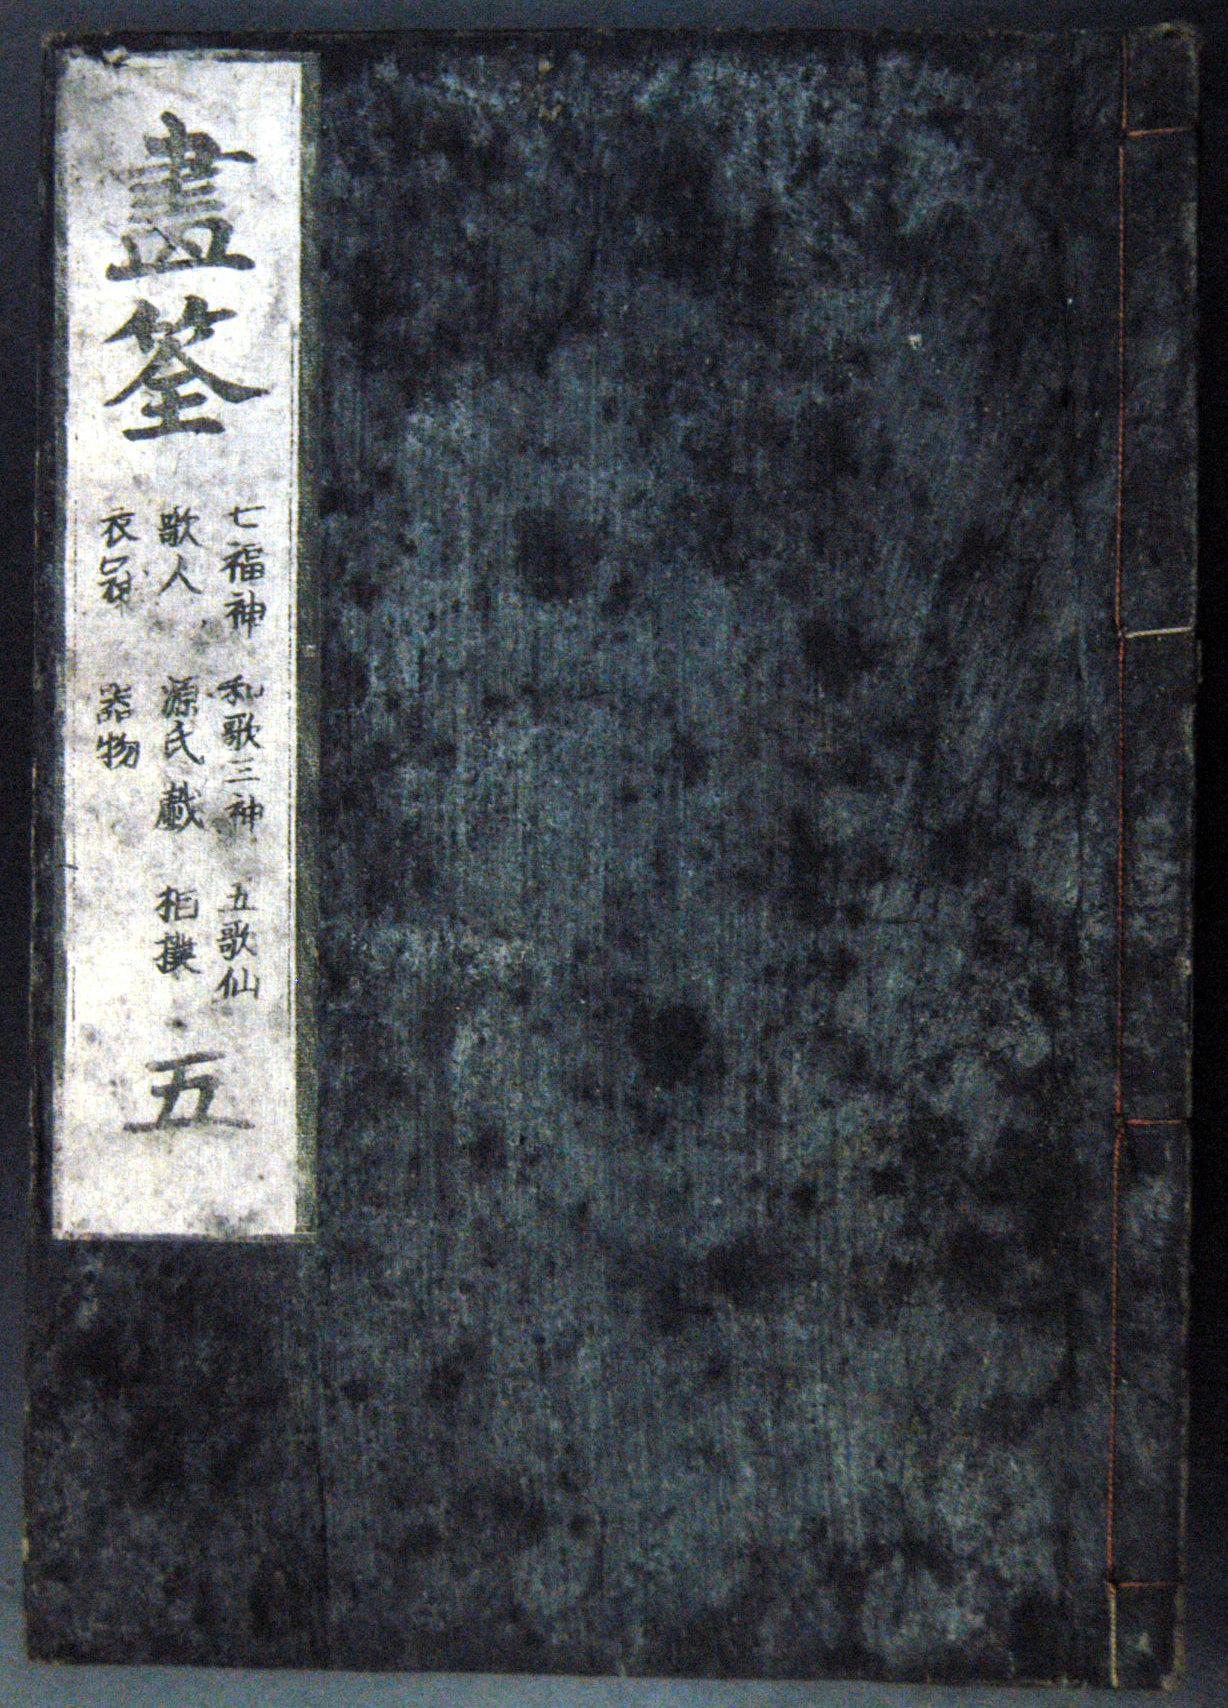 畫筌
七福神 和歌三神 五歌仙
歌人 源氏戯 相撲
衣冠 器物
五